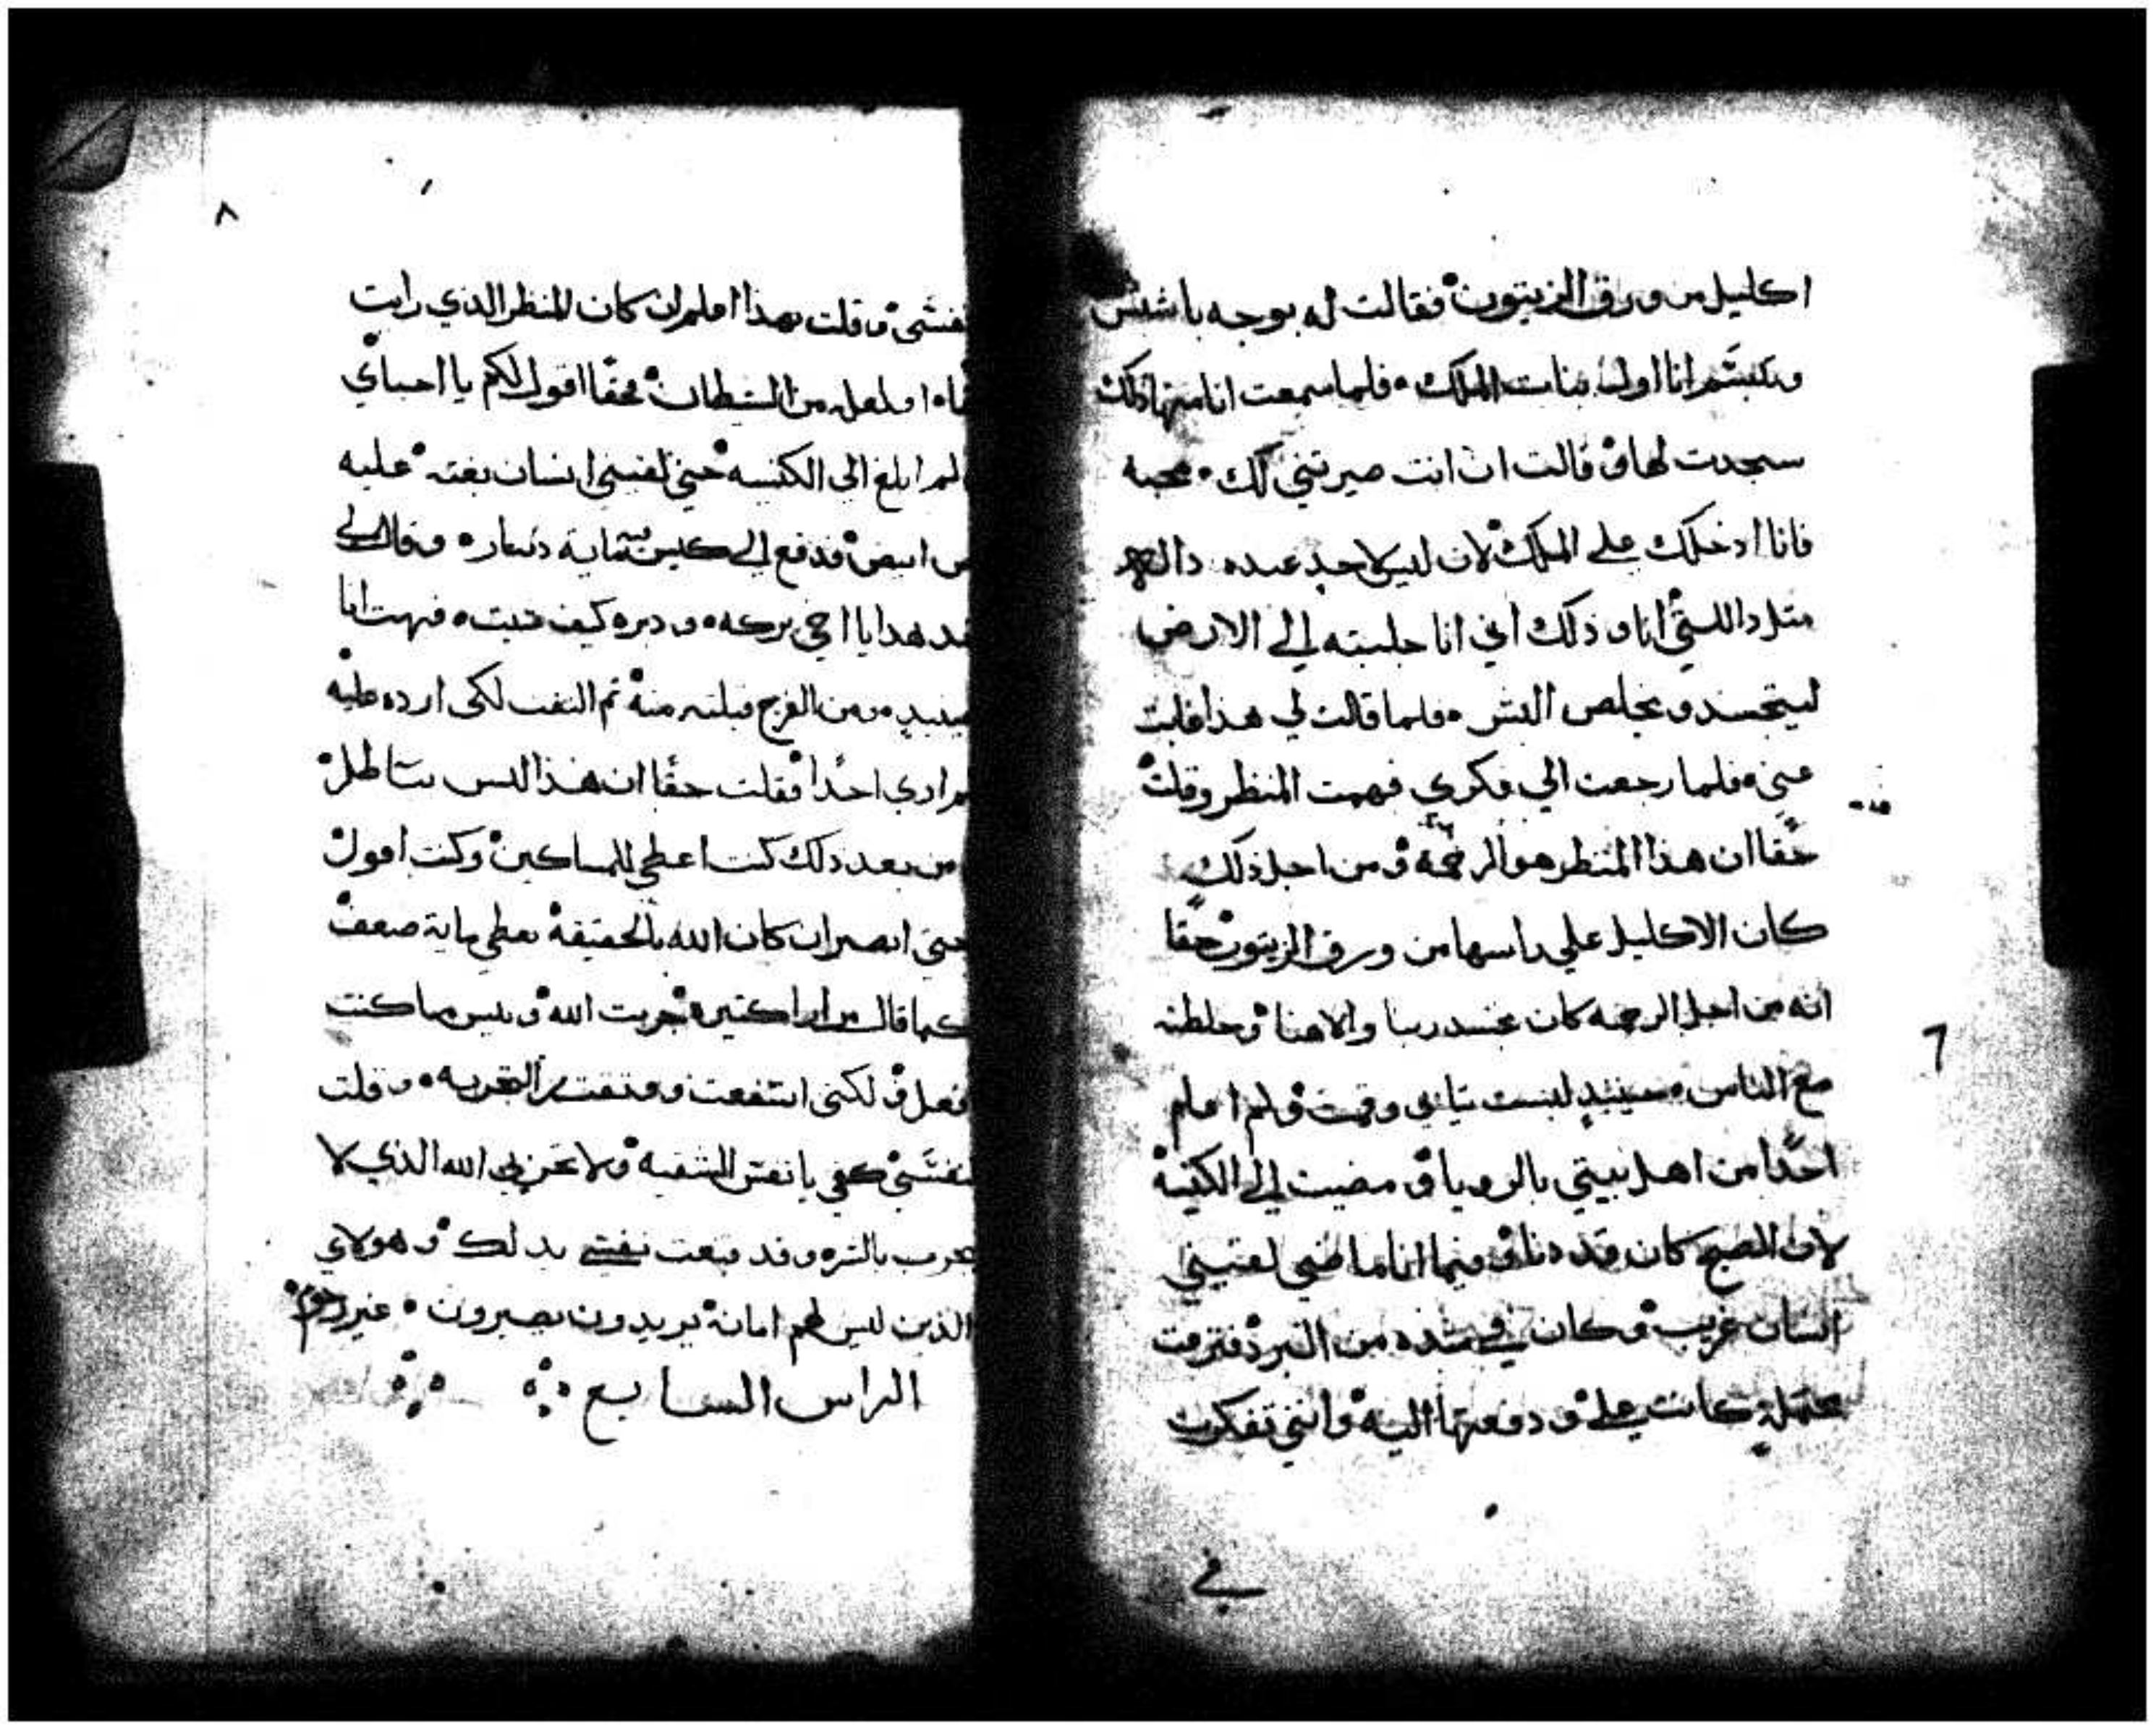 اكليل من ورق الزيتون فقالت له بوجه باشش
وتبسم انا اولى بنات الملك فلما سمعت انا منها ذلك
سجدت لها و قالت ان انت صيرتني لك محبه
فانا ادخلك علي الملك لان ليس لاحد عنده داله
متل دالتي انا و ذلك اني انا جلبته الي الارض
ليتجسد و يخلص البشر فلما قالت لي هذا غابت
عني فلما رجعت الي فكري فهمت المنظر وقلت
حقا ان هذا المنظر هو الرحمة و من اجل ذلك
كان الاكليل علي راسها من ورق الزيتون حقا
انه من اجل الرحمه كان تجسد ربنا والاهنا و خلطته
مع الناس حينيد لبست تيابي وقمت و لم اعلم
احدا من اهل بيتي بالرويا و مضيت الي الكنيسة
لان الصبح كان قد دنا و فيما انا ماضي لقيني
انسان غريب و كان في شده من البرد فنزعت
كانت علي و دفعتها اليه و انني تفكرت
في
٨
نفسي و قلت بهذا اعلم ان كان المنظر الذي رايت
من الشيطان محقا اقول لكم يا احباي
لم ابلغ الي الكنيسه حتي لقيني انسان بغته عليه
ابيض فدفع الي كيس دينار و قال لي
هدا يا اخي بركه و دبره كيف شيت فبهت انا
حينيد و من الفرح قبلته منه تم التفت لكي ارده عليه
لم اري احدا فقلت حقا ان هذا ليس بباطل
من بعد ذلك كنت اعطي للمساكين وكنت اقول
حتي ابصر ان كان الله بالحقيقة يعطي ماية ضعف
كما قال مرارا كتيرة جربت الله و بيس ما كنت
افعل و لكني انتفعت و وتقت التجربه و قلت
لنفسي كفي يا نفس الشقيه و لا تجربي الله الذي لا
يجرب بالشر و قد تبعت نفسي بدلك و هولاي
الذين ليس لهم امانة يريدون يصيرون غير
الراس السابع